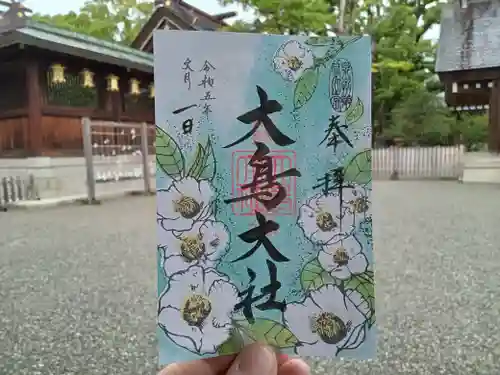 奉拝
大鳥大社
令和五年
文月一日